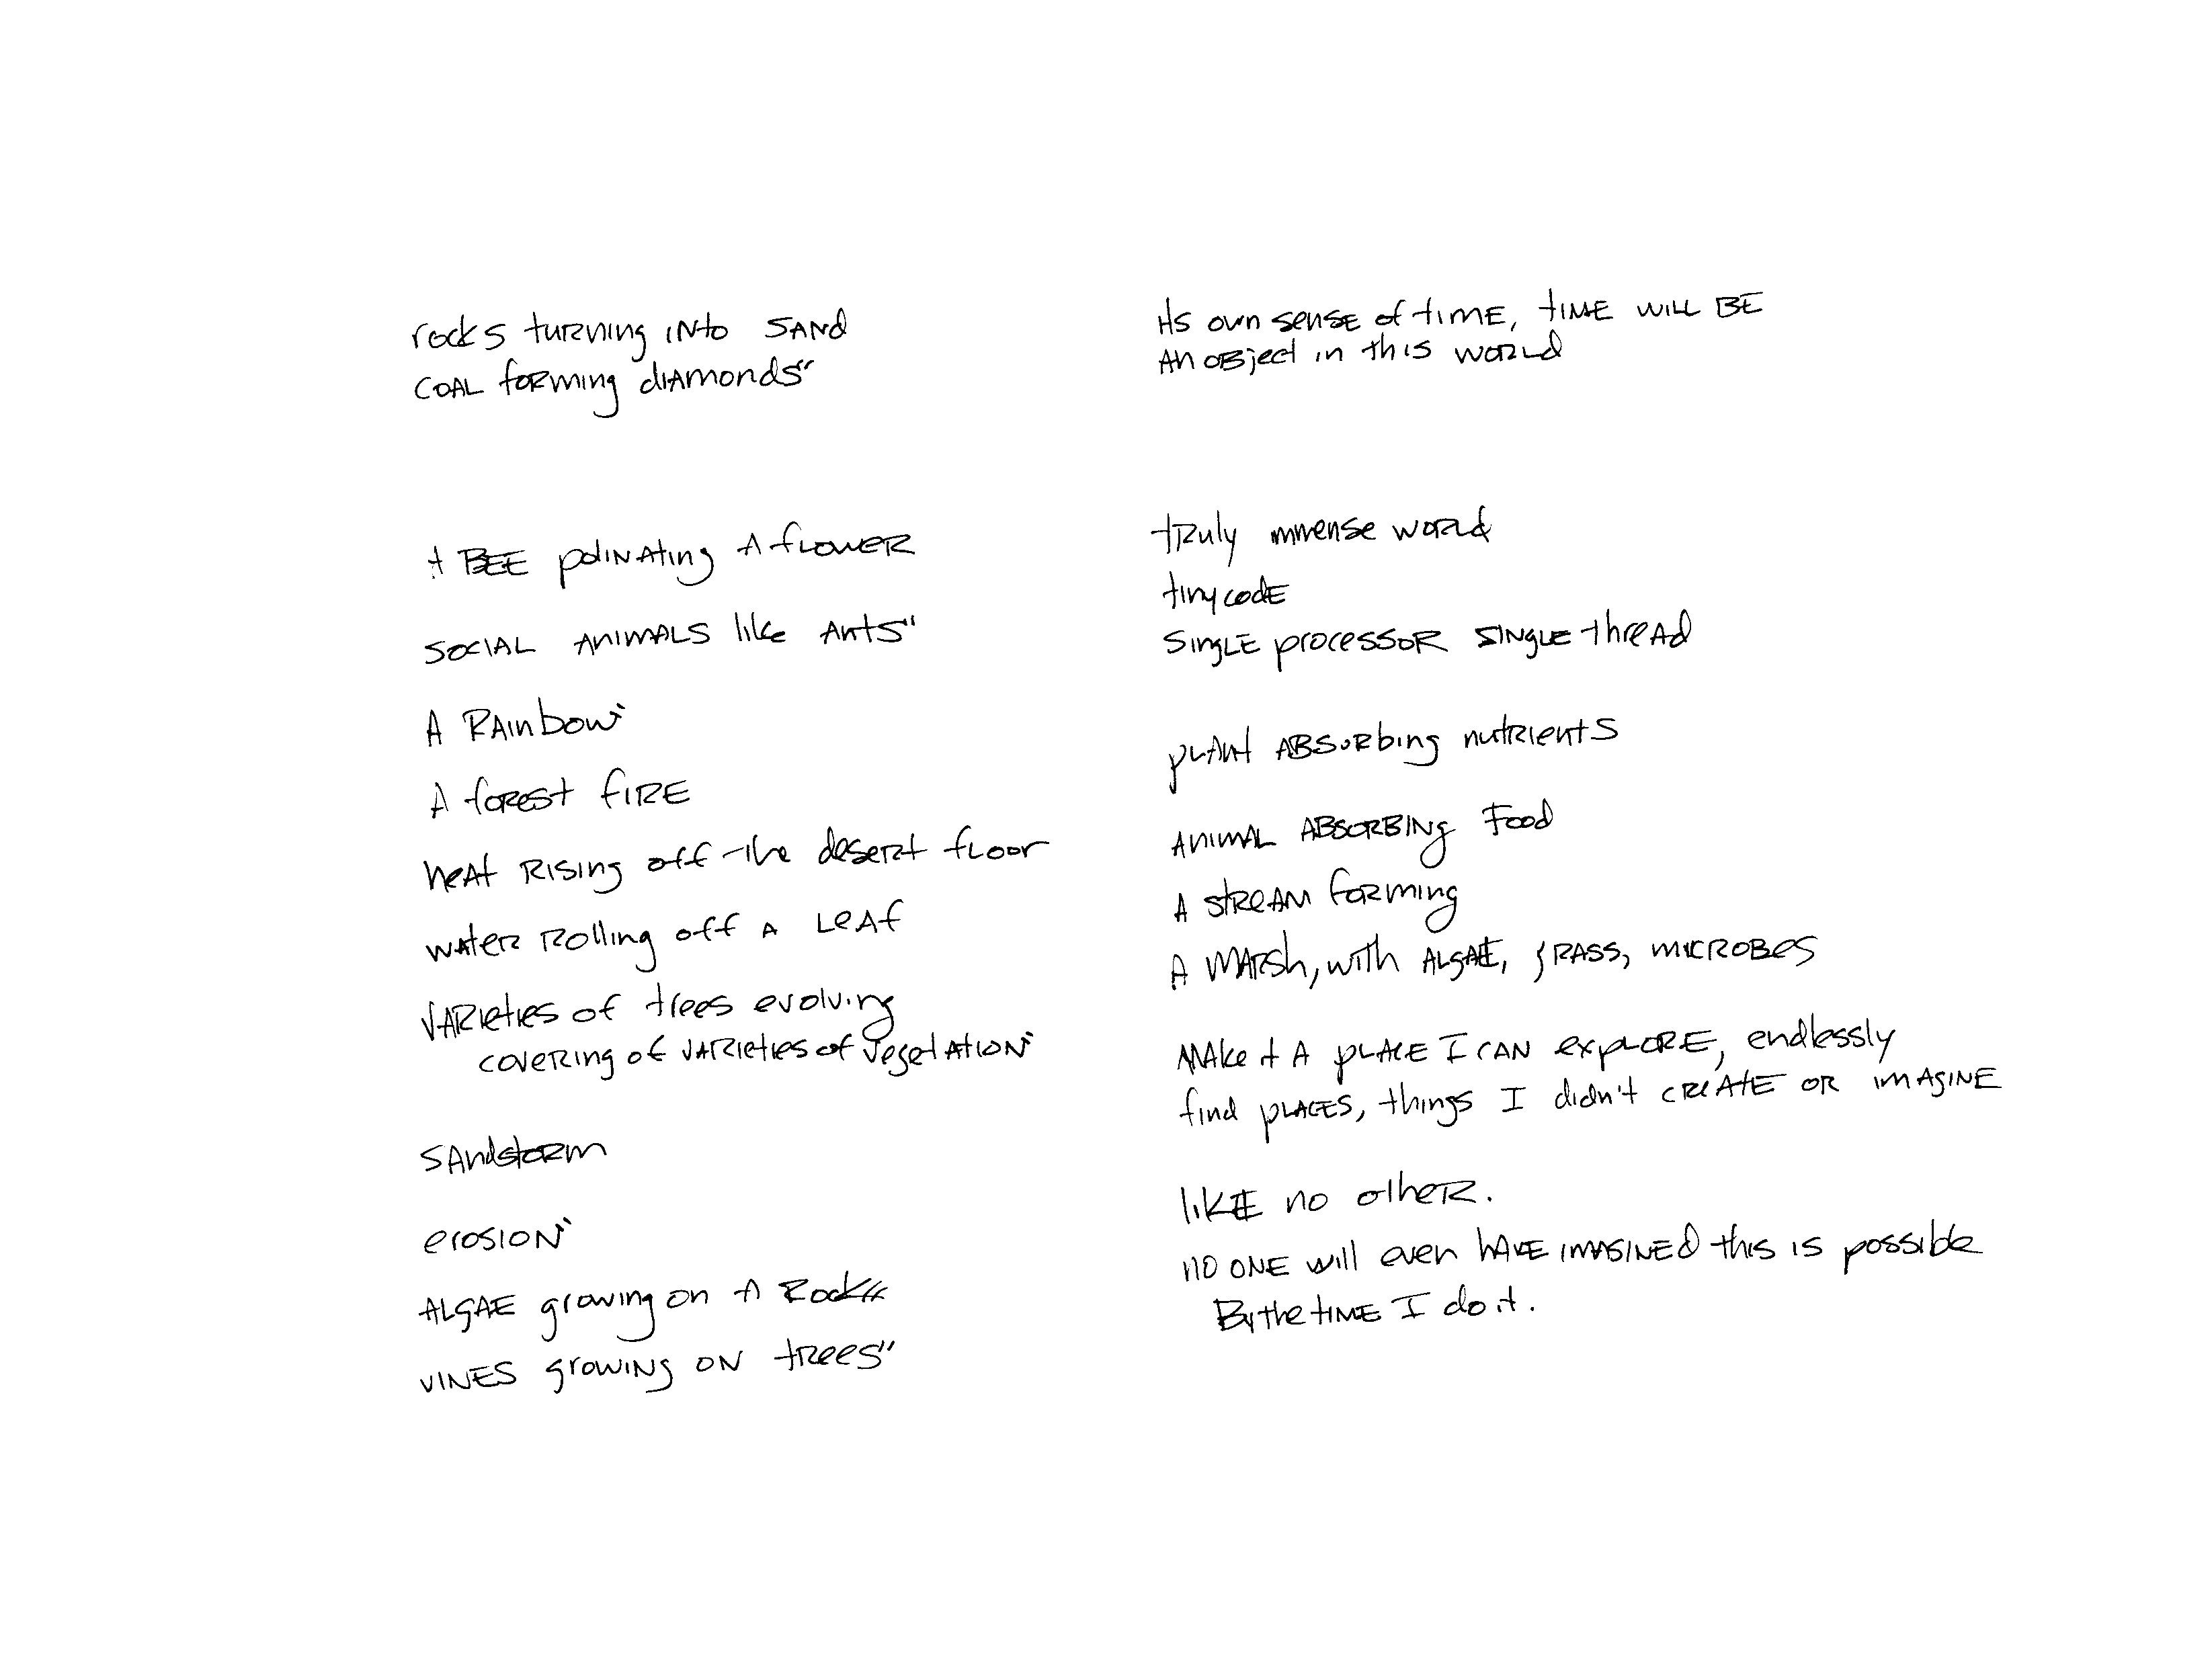 rocks turning into sand
coal forming diamonds"
A BEE polinating A flower
social animals like ants"
A Rainbow
A forest fire
heat rising off the desert floor
water rolling off a leaf
varieties of trees evolving
covering of varieties of vegetation
sandstorm
erosion
algae growing on a rock
vines growing on trees"
its own sense of time, time will be
an object in this world
truly immense world
tiny code
single processor single thread
plant absorbing nutrients
animal absorbing food
A stream forming
A marsh, with algae, grass, microbes
Make it a place I can explore, endlessly
find places, things I didn't create or imagine
like no other.
no one will even have imagined this is possible
By the time I do it.